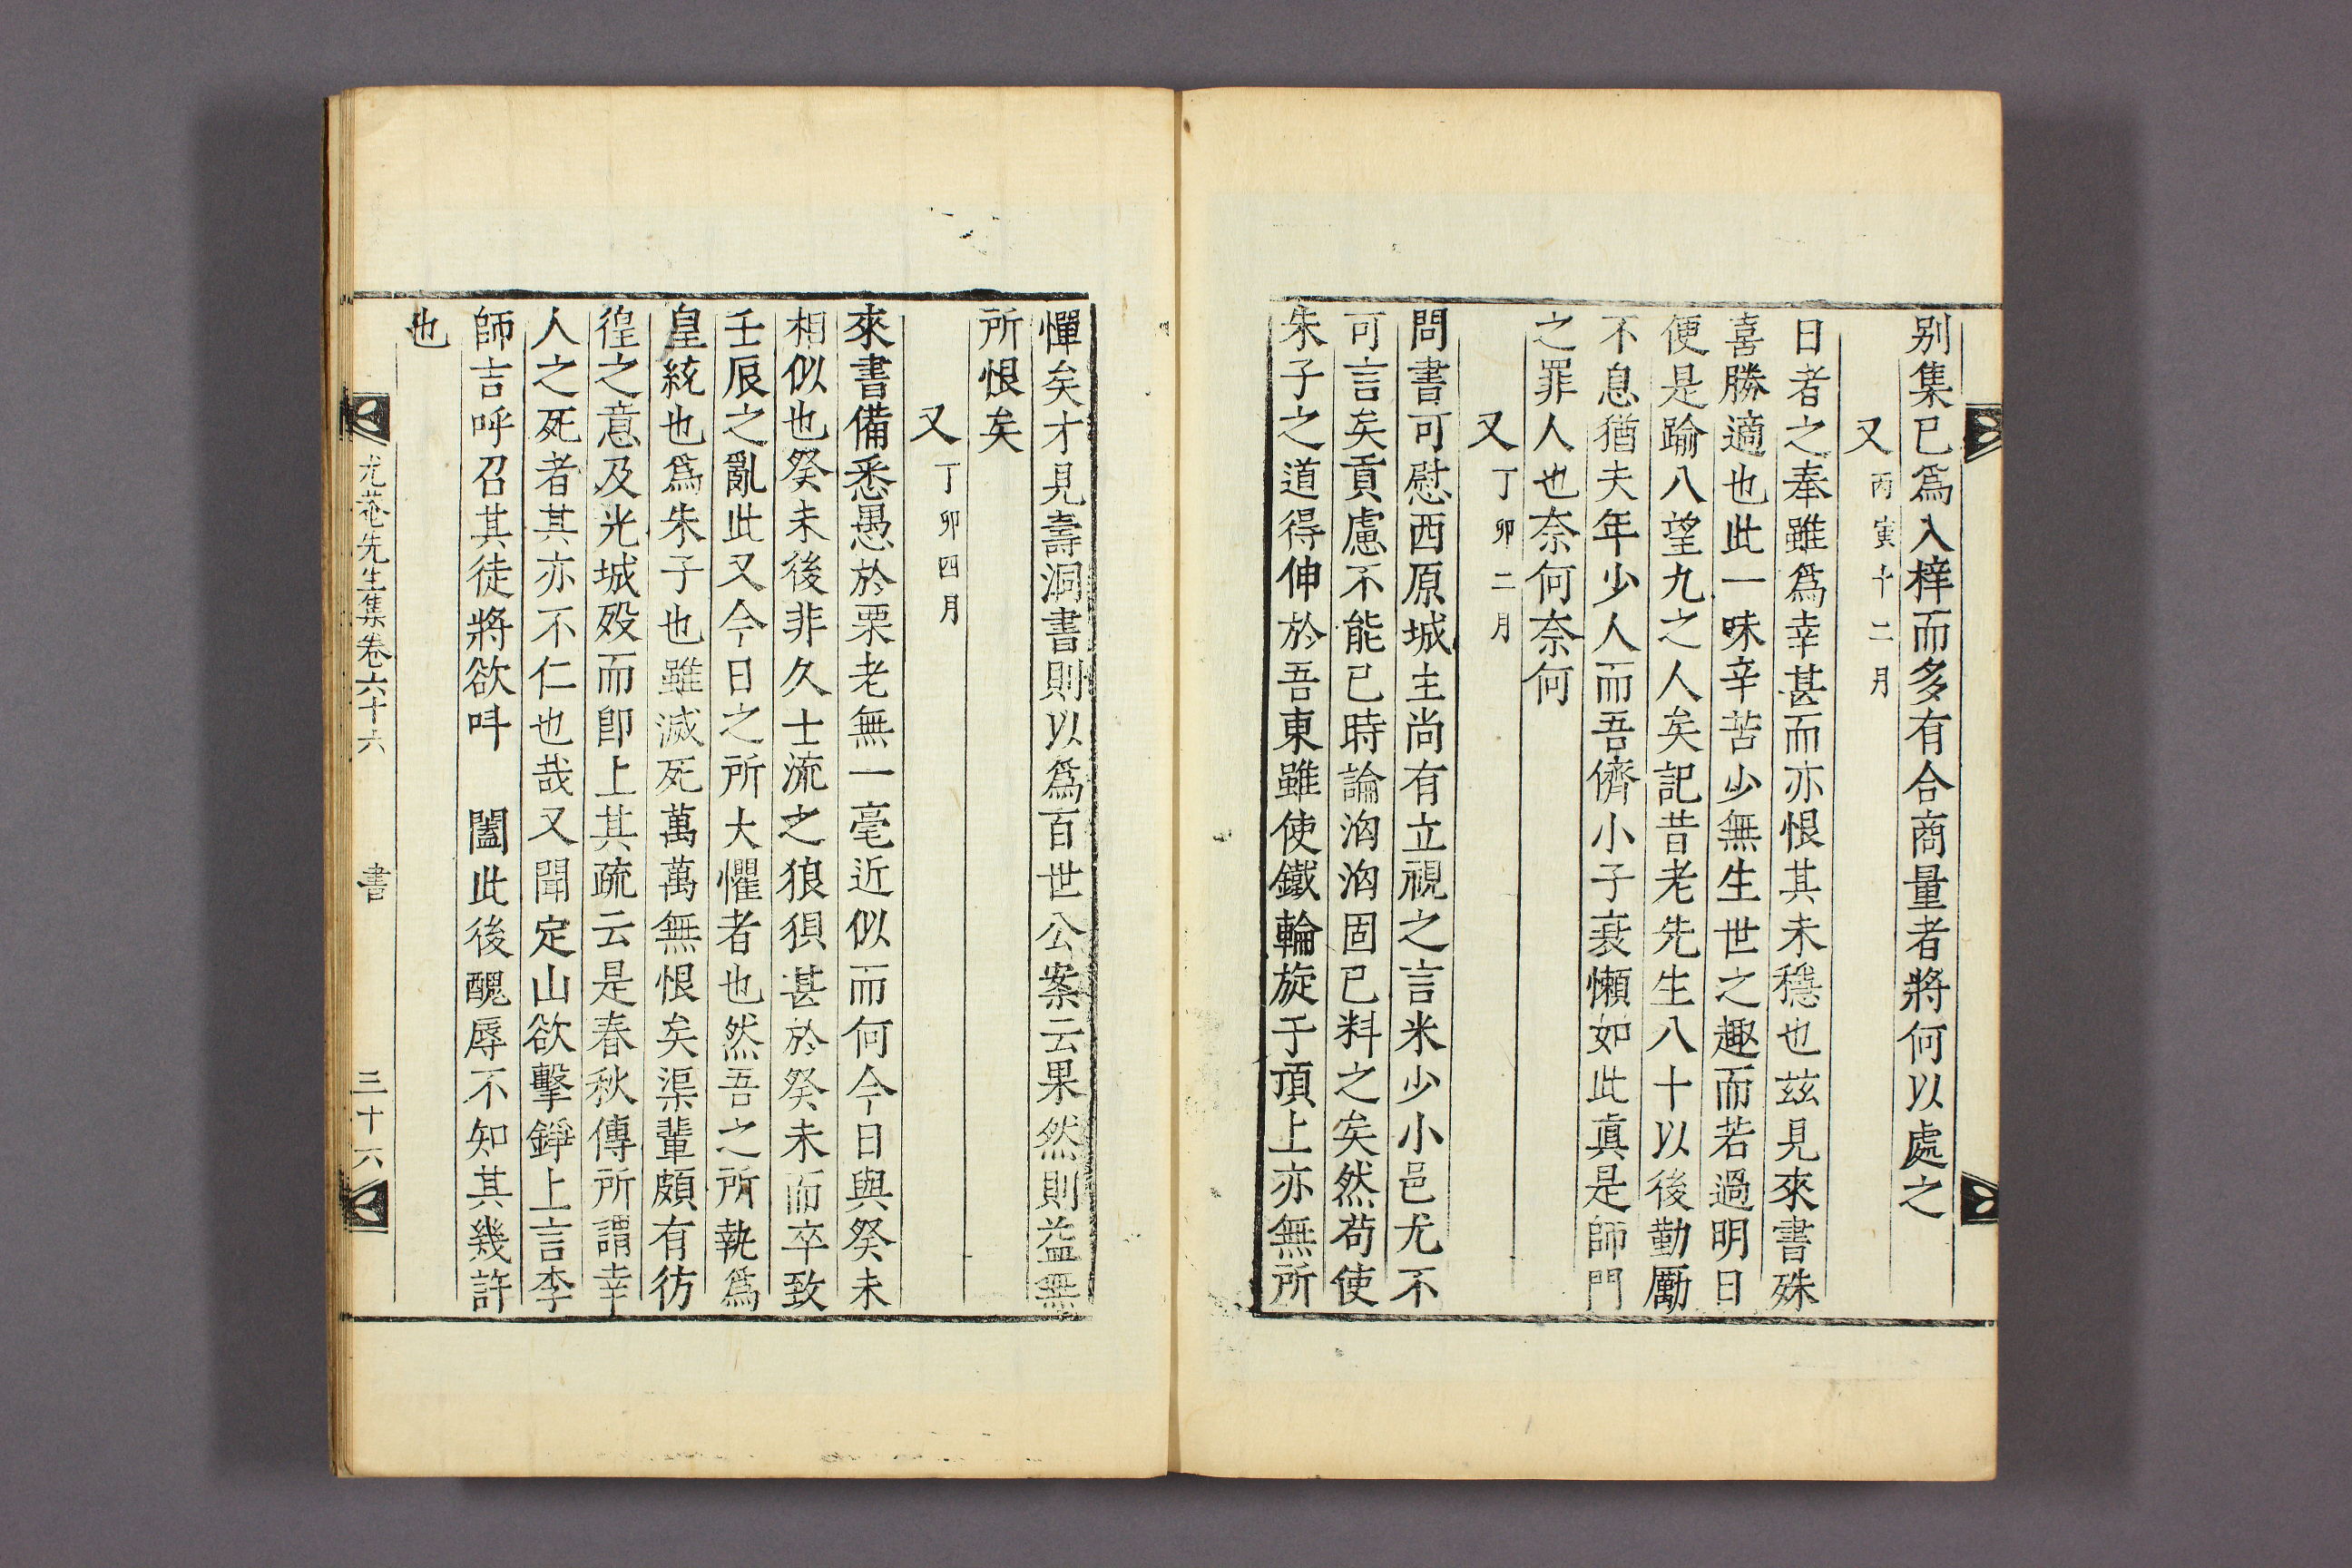 别集已爲入梓而多有合商量者將何以處之
又丙寅十二月
日者之奉雖爲幸甚而亦恨其未穩也玆見來書殊
喜勝適也此一味辛苦少無生世之趣而若過明日
便是踰八望九之人矣記昔老先生八十以後勤勵
不息猶夫年少人而吾儕小子衰懶如此眞是師門
之罪人也奈何奈何
又丁卯二月
問書可慰西原城主尚有立視之言米少小邑尤不
可言矣貢慮不能已時論洶洶固已料之矣然苟使
朱子之道得伸於吾東雖使鐵輪旋于頂上亦無所
憚矣才見壽洞書則以爲百世公案云果然則益無
所恨矣
又丁卯四月
來書備悉愚於栗老無一毫近似而何今日與癸未
相似也癸未後非久士流之狼狽甚於癸未而卒致
壬辰之亂此又今日之所大懼者也然吾之所執爲
皇統也爲朱子也雖滅死萬萬無恨矣渠輩頗有彷
徨之意及光城歿而卽上其疏云是春秋傳所謂幸
人之死者其亦不仁也哉又聞定山欲擊錚上言李
師吉呼召其徒將欲呌　闔此後醜辱不知其幾許
也
尤菴先生集卷六十六　書　三十六